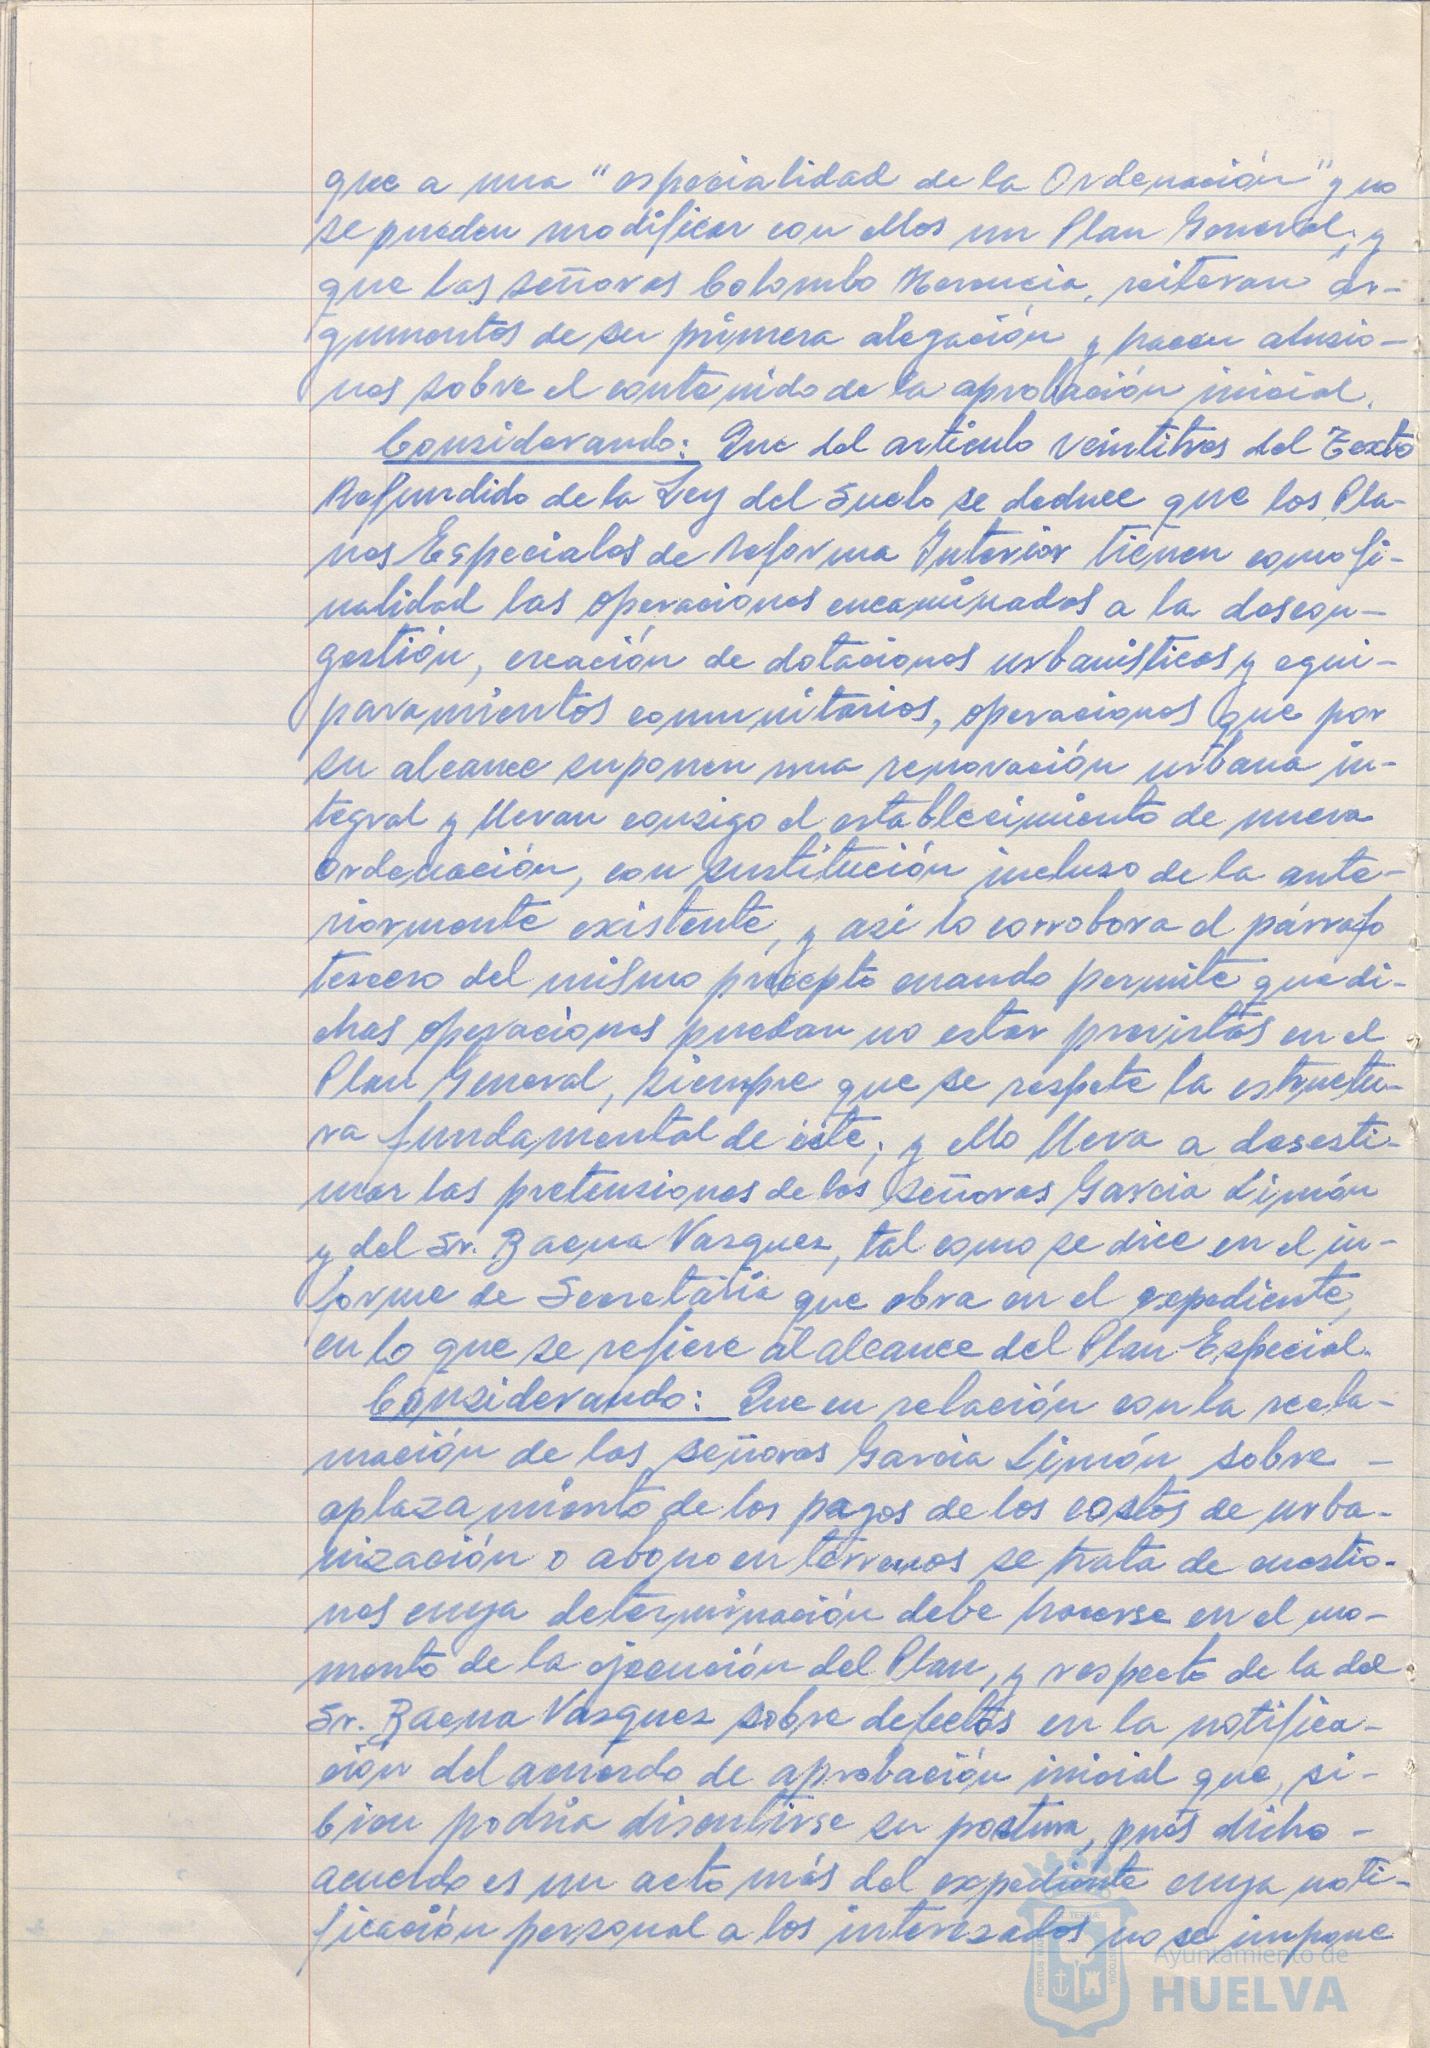 que a una "especialidad de la Ordenación" y no
se pueden modificar con ellos un Plan General; y
que las señoras Colombo Merencia, reiteran ar-
gumentos de su primera alegación y hacen alusio-
nes sobre el contenido de la aprobación inicial.
Considerando: Que del articulo veintitres del Texto
Refundido de la Ley del Suelo se deduce que los Pla-
nes Especiales de Reforma Interior tienen como fi-
nalidad las operaciones encaminadas a la descon-
gestión, creación de dotaciones urbanísticas y equi-
paramientos comunitarios, operaciones que por
su alcance suponen una renovación urbana in-
tegral y llevan consigo el establecimiento de nueva
Ordenación, con sustitución incluso de la ante-
riormente existente, y así lo corrobora el párrafo
tercero del mismo precepto cuando permite que di-
chas operaciones puedan no estar previstas en el
Plan General, siempre que se respete la estructu-
ra fundamental de éste; y ello lleva a desesti-
mar las pretensiones de los señores García Limón
y del Sr. Baena Vasquez, tal como se dice en el in-
forme de Secretaría que obra en el expediente,
en lo que se refiere al alcance del Plan Especial.
Considerando: Que en relación con la recla-
mación de los señores García Limón sobre -
aplazamiento de los pagos de los costos de urba-
nización o abono en terrenos se trata de cuestio-
nes cuya determinación debe hacerse en el mo-
mento de la ejecución del Plan, y respecto de la del
Sr. Baena Vasquez sobre defectos en la notifica-
ción del acuerdo de aprobación inicial que, si-
bien podría discutirse su postura, pues dicho -
acuerdo es un acto más del expediente cuya noti-
ficación personal a los interesados no se impone
Ayuntamiento de
HUELVA